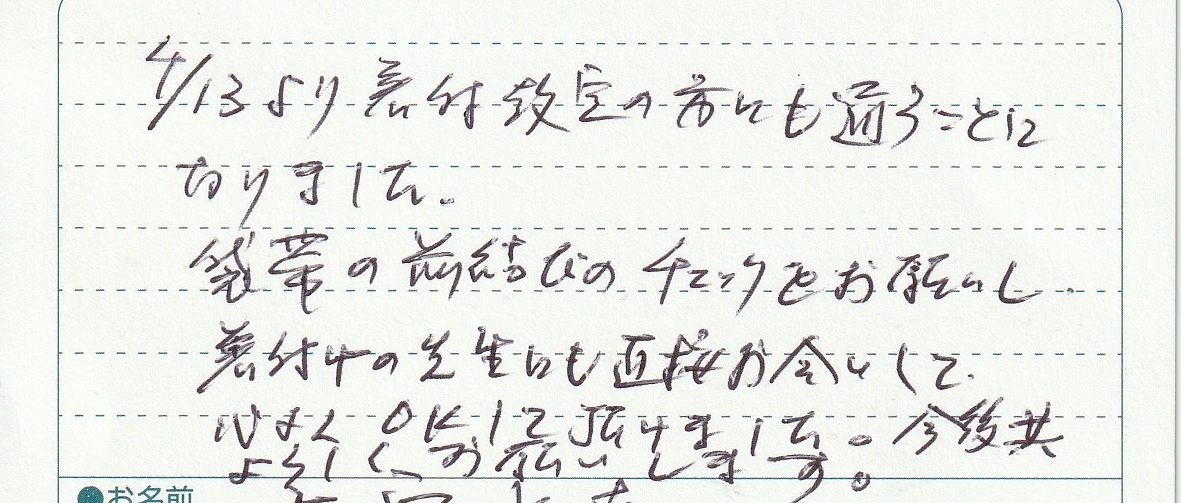 4/13より着付教室の方にも通うことに
なりました。
袋帯の前結びのチェックをお願いし、
着付けの先生にも直接お会いして、
心よくOKして頂けました。今後共
よろしくお願いします。
●お名前